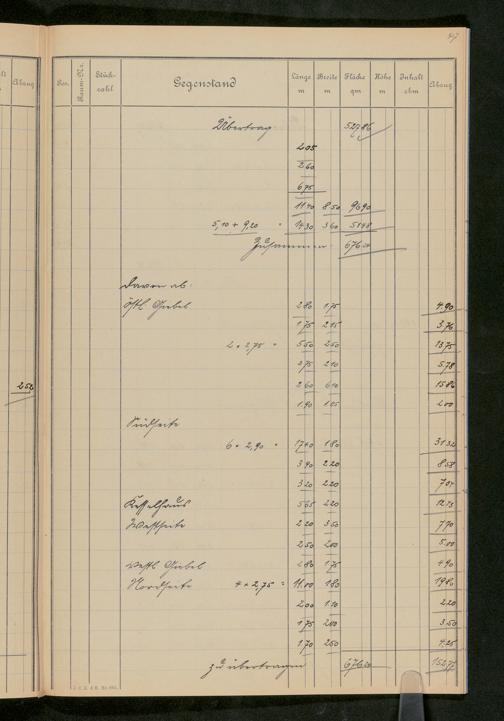 47
Pos. Raum-Nr. Stückzahl Gegenstand Länge m Breite m Fläche qm Höhe m Inhalt cbm Abzug
Übertrag 527,86
4 05
2 60
6 75
11 40 8 50 96 90
5,10 + 9,20 = 14 30 3 60 51 48
Zusammen: 676 24
Davon ab:
östl. Giebel 2 80 1 75 4.90
1 75 2 15 3.76
2 × 2,75 = 5 50 2 50 13 75
2 75 2 10 5 78
2 60 6 10 15 86
1 90 1 05 2 00
Südseite
6 × 2,90 = 17 40 1 80 31 32
3 90 2 20 8 58
3 20 2 20 7 04
Kesselhaus 5 65 2 20
Westseite 2 20 3 50 7 70
2 50 2 00 5 00
westl. Giebel 2 80 1 75 4 90
Nordseite 4 × 2,75 = 11 00 1 80 19 80
2 00 1 10 2 20
1 75 2 00 3 50
1 70 2 50 4.25
zu übertragen 676 24
2 50